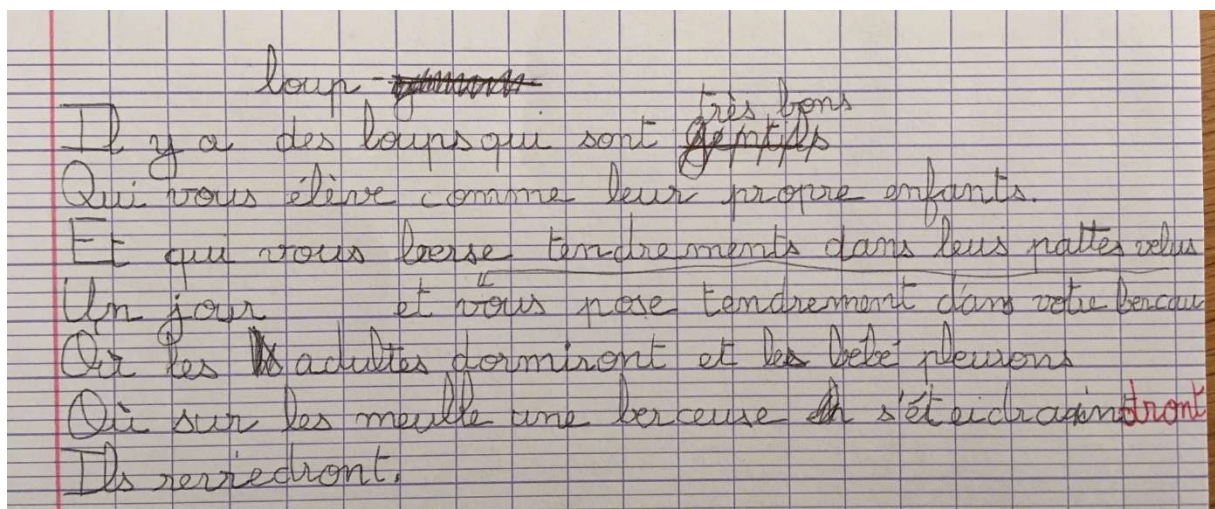 loup
très bons
Il y a des loups qui sont gentils
Qui vous élève comme leur propre enfants.
Et qui vous berse tendrements dans leus pattes velus
Un jour et vous pose tendrement dans votre berceau
Où les adultes dormiront et les bébé pleurons
Où sur les meulle une berceuse s'éteidra dront
Ils reviedront.